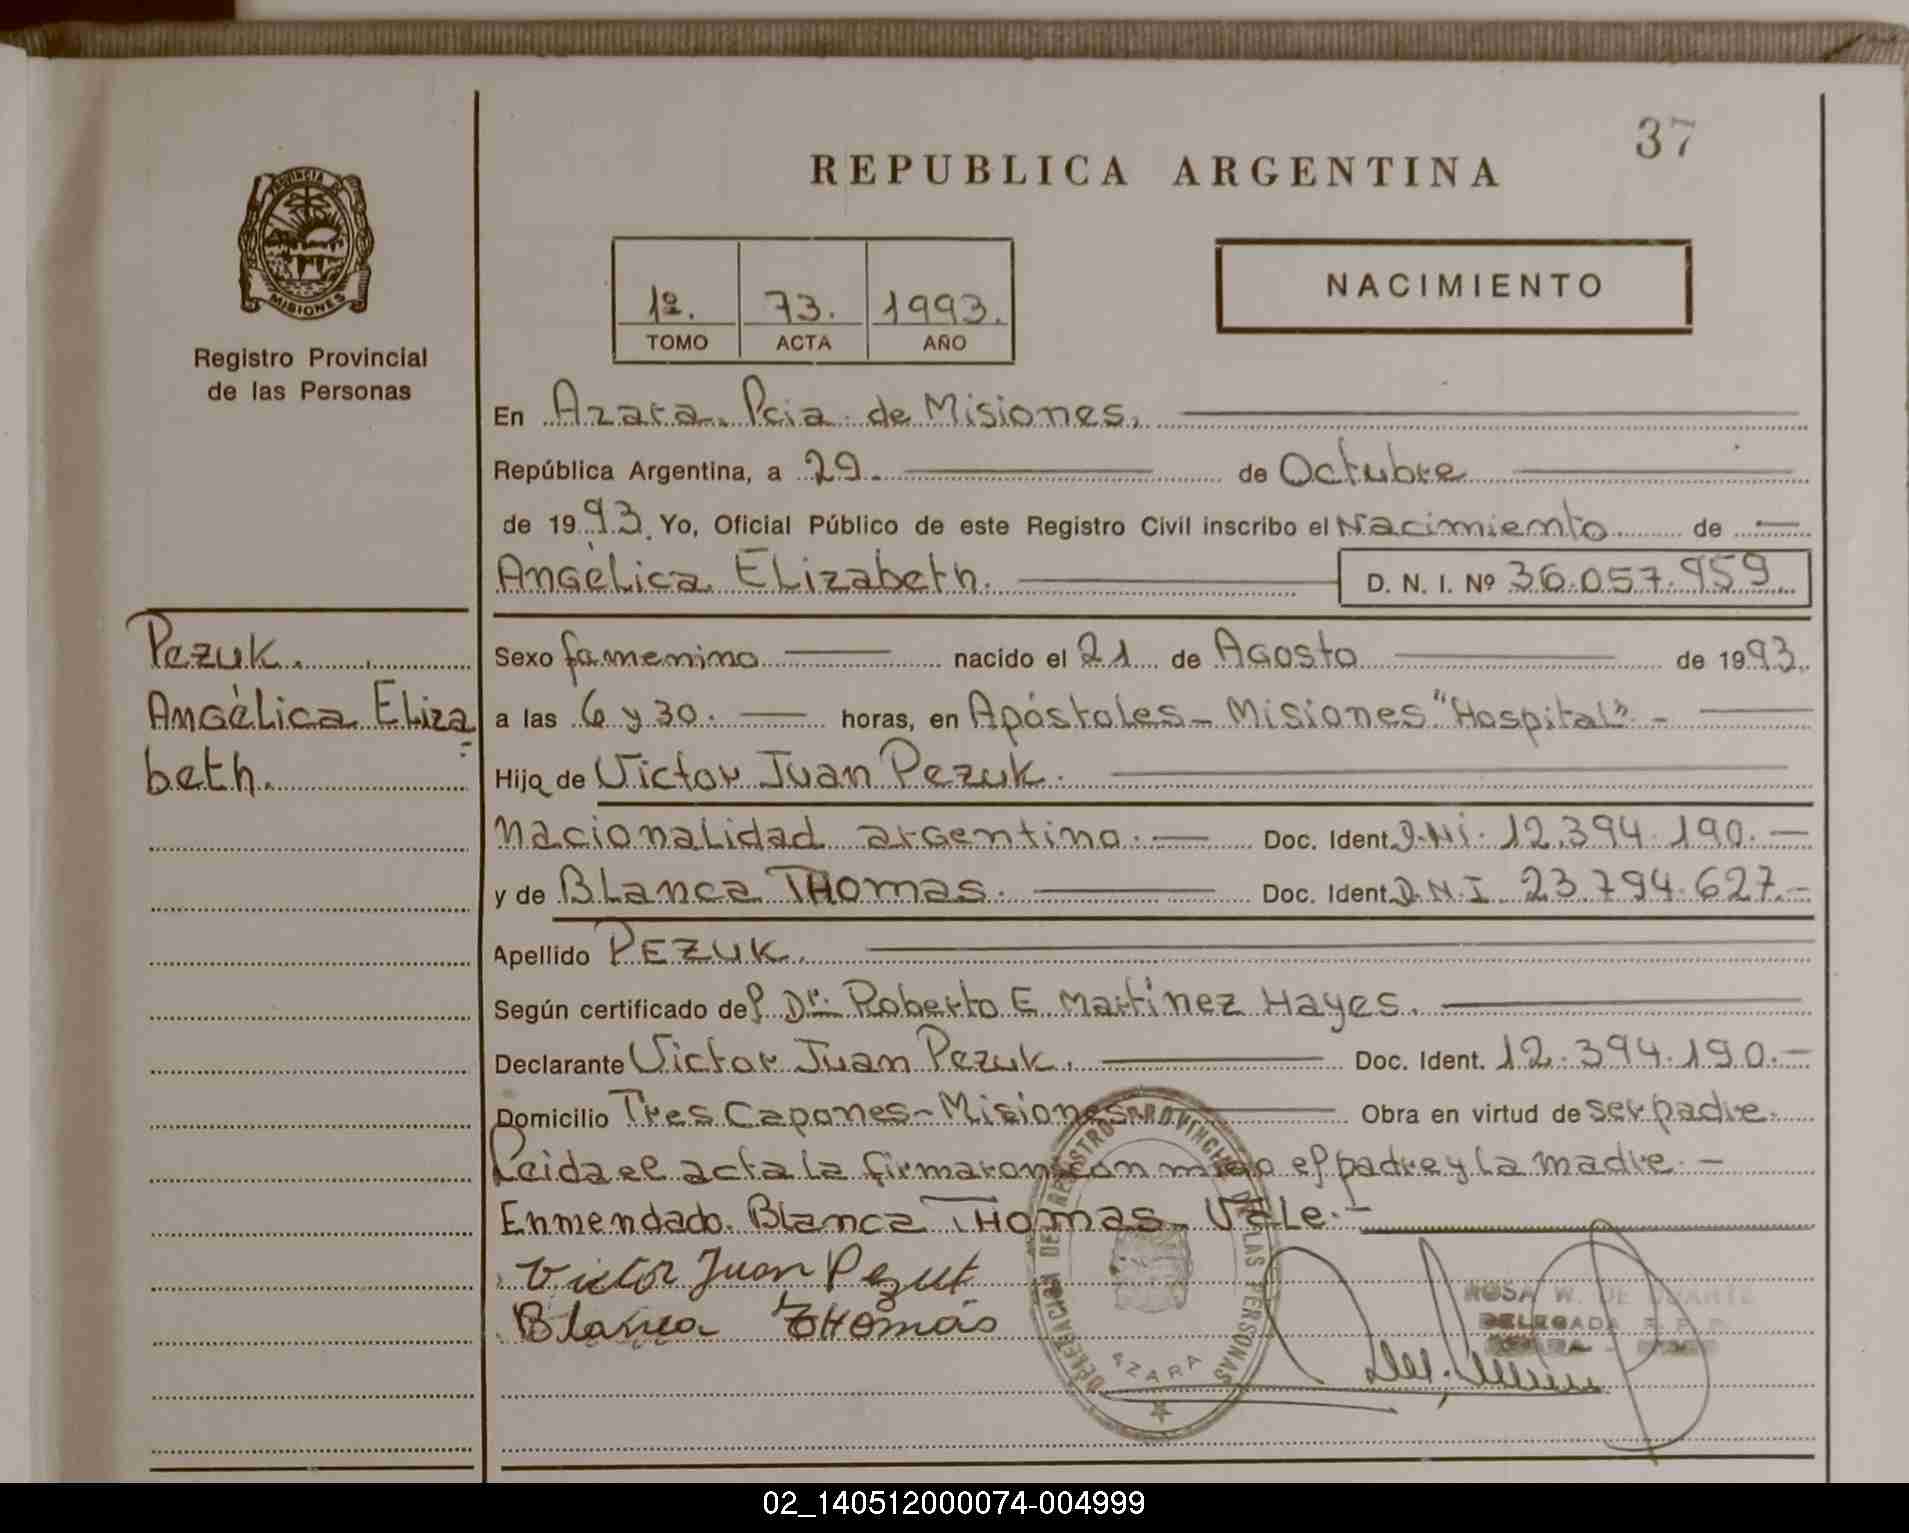 37
REPUBLICA ARGENTINA
PROVINCIA DE
MISIONES
Registro Provincial
de las Personas
1º. 73. 1993.
TOMO ACTA AÑO
NACIMIENTO
En Azara. Pcia. de Misiones.
República Argentina, a 29. de Octubre
de 1993. Yo, Oficial Público de este Registro Civil inscribo el Nacimiento de
Angélica Elizabeth. D. N. I. Nº 36.057.959
Pezuk.
Angélica Eliza
beth.
Sexo famenino nacido el 21 de Agosto de 1993.
a las 6 y 30. horas, en Apóstoles - Misiones "Hospital". -
Hija de Victor Juan Pezuk.
Nacionalidad argentino. Doc. Ident. D.N.I. 12.394.190. -
y de Blanca THomas. Doc. Ident. D.N.I. 23.794.627. -
Apellido PEZUK.
Según certificado del Dr. Roberto E. Martinez Hayes.
Declarante Victor Juan Pezuk. Doc. Ident. 12.394.190. -
Domicilio Tres Capones - Misiones Obra en virtud de ser padre.
Leida el acta la firmaron con migo el padre y la madre. -
Enmendado. Blanca THomas - Vale. -
Victor Juan Pezuk
Blanca THomas
DELEGACION DEL REGISTRO PROVINCIAL DE LAS PERSONAS
AZARA
ROSA W. DE DUARTE
DELEGADA R. P. P.
02_140512000074-004999